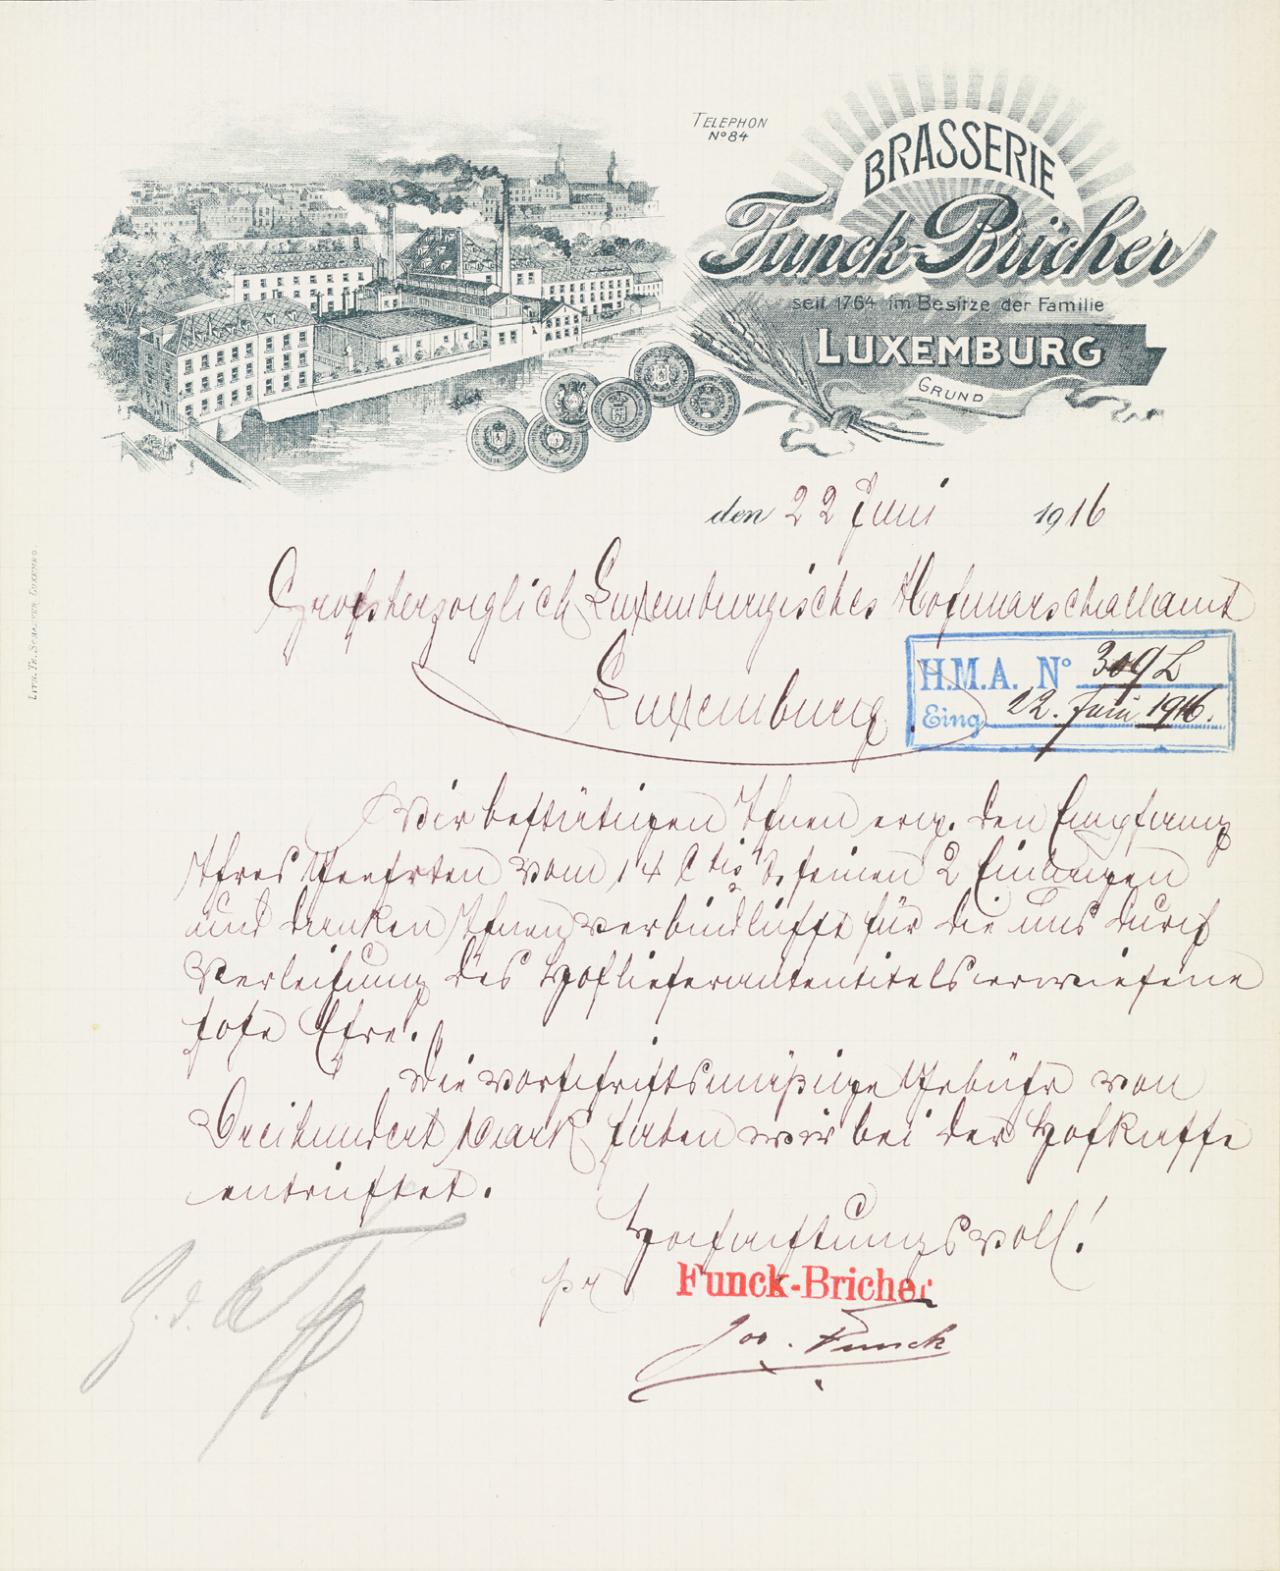 TELEPHON
No 84
BRASSERIE
Funck-Bricher
seit 1764 im Besitze der Familie
LUXEMBURG
GRUND
den 22 Juni 1916
Großherzoglich Luxemburgisches Hofmarschallamt
Luxemburg
H.M.A. No 309 L
Eing. 22. Juni 1916.
LITH. TH. SCHROELL, LUXEMBG.
Wir bestätigen Ihnen erg. den Empfang
Ihres Geehrten vom 14 dis seinen 2 Einlagen
und danken Ihnen verbindlichst für die uns durch
Verleihung des Hoflieferantentitels erwiesene
hohe Ehre.
Die vorschriftsmäßige Gebühr von
Dreihundert Mark haben wir bei der Hofkasse
entrichtet.
Hochachtungsvoll!
pr Funck-Bricher
Jos. Funck
Z. d. A.